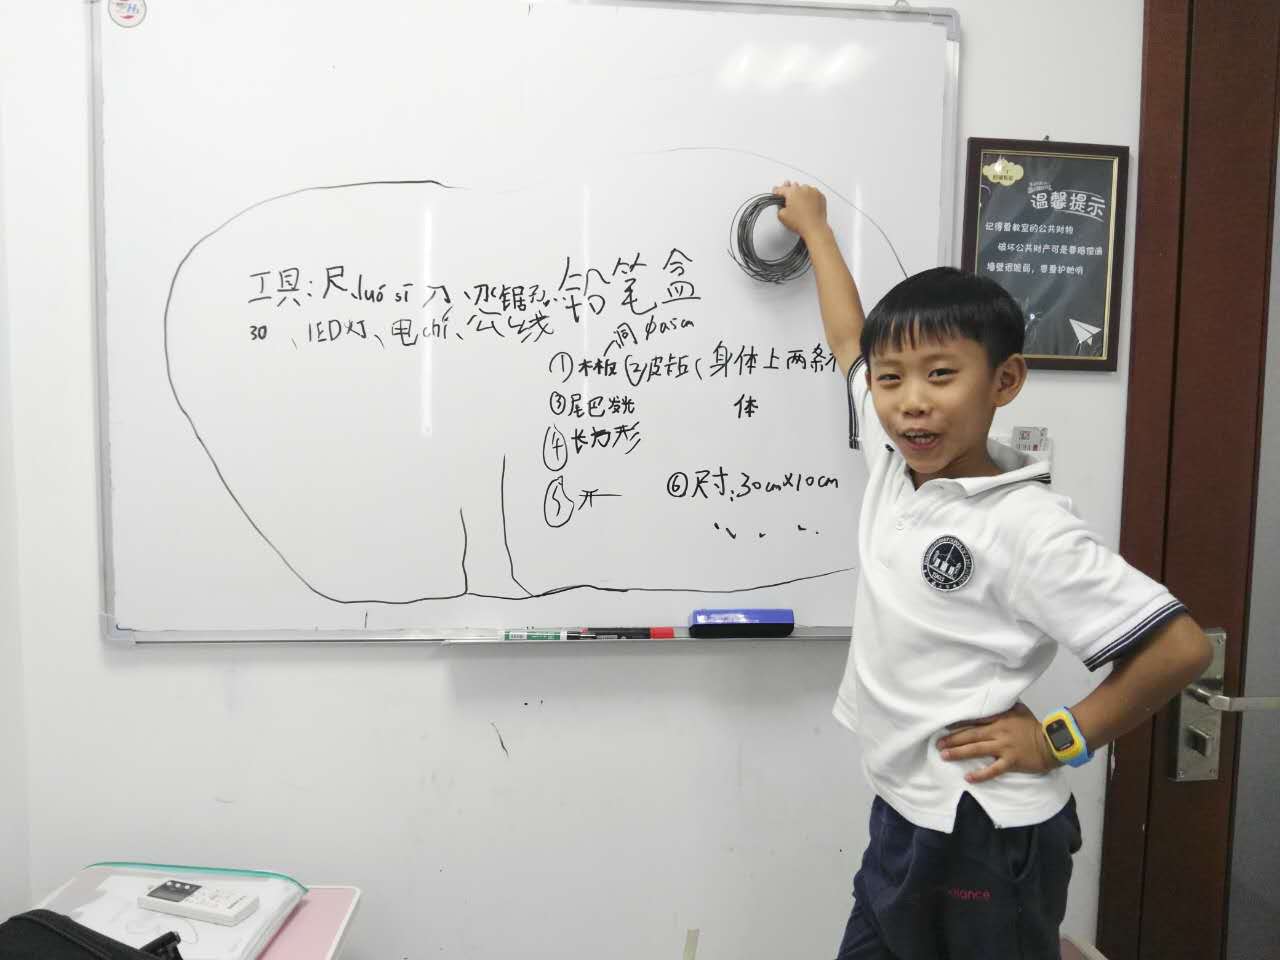 工具:尺、luó sī刀、水锯孔、铅笔盒
30、LED灯、电chí、公线
洞 φ0.5cm
①木板 ②皮卡(身体上两条
体
③尾巴发光
④长方形
⑤开
⑥尺寸:30cm×10cm
温馨提示
记得着教室的公共财物
破坏公共财产可是要赔偿滴
墙壁很脆弱,要爱护她哟